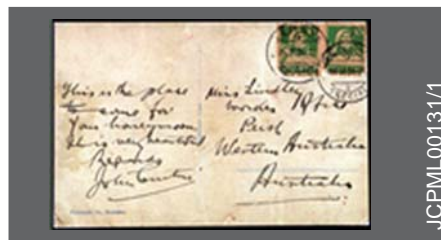 This is the place
to come for
your honeymoon
It is very beautiful
Regards
John Curtin
Miss Lindsley
Worker Office
Perth
Western Australia
Australia
JCPML00131/1